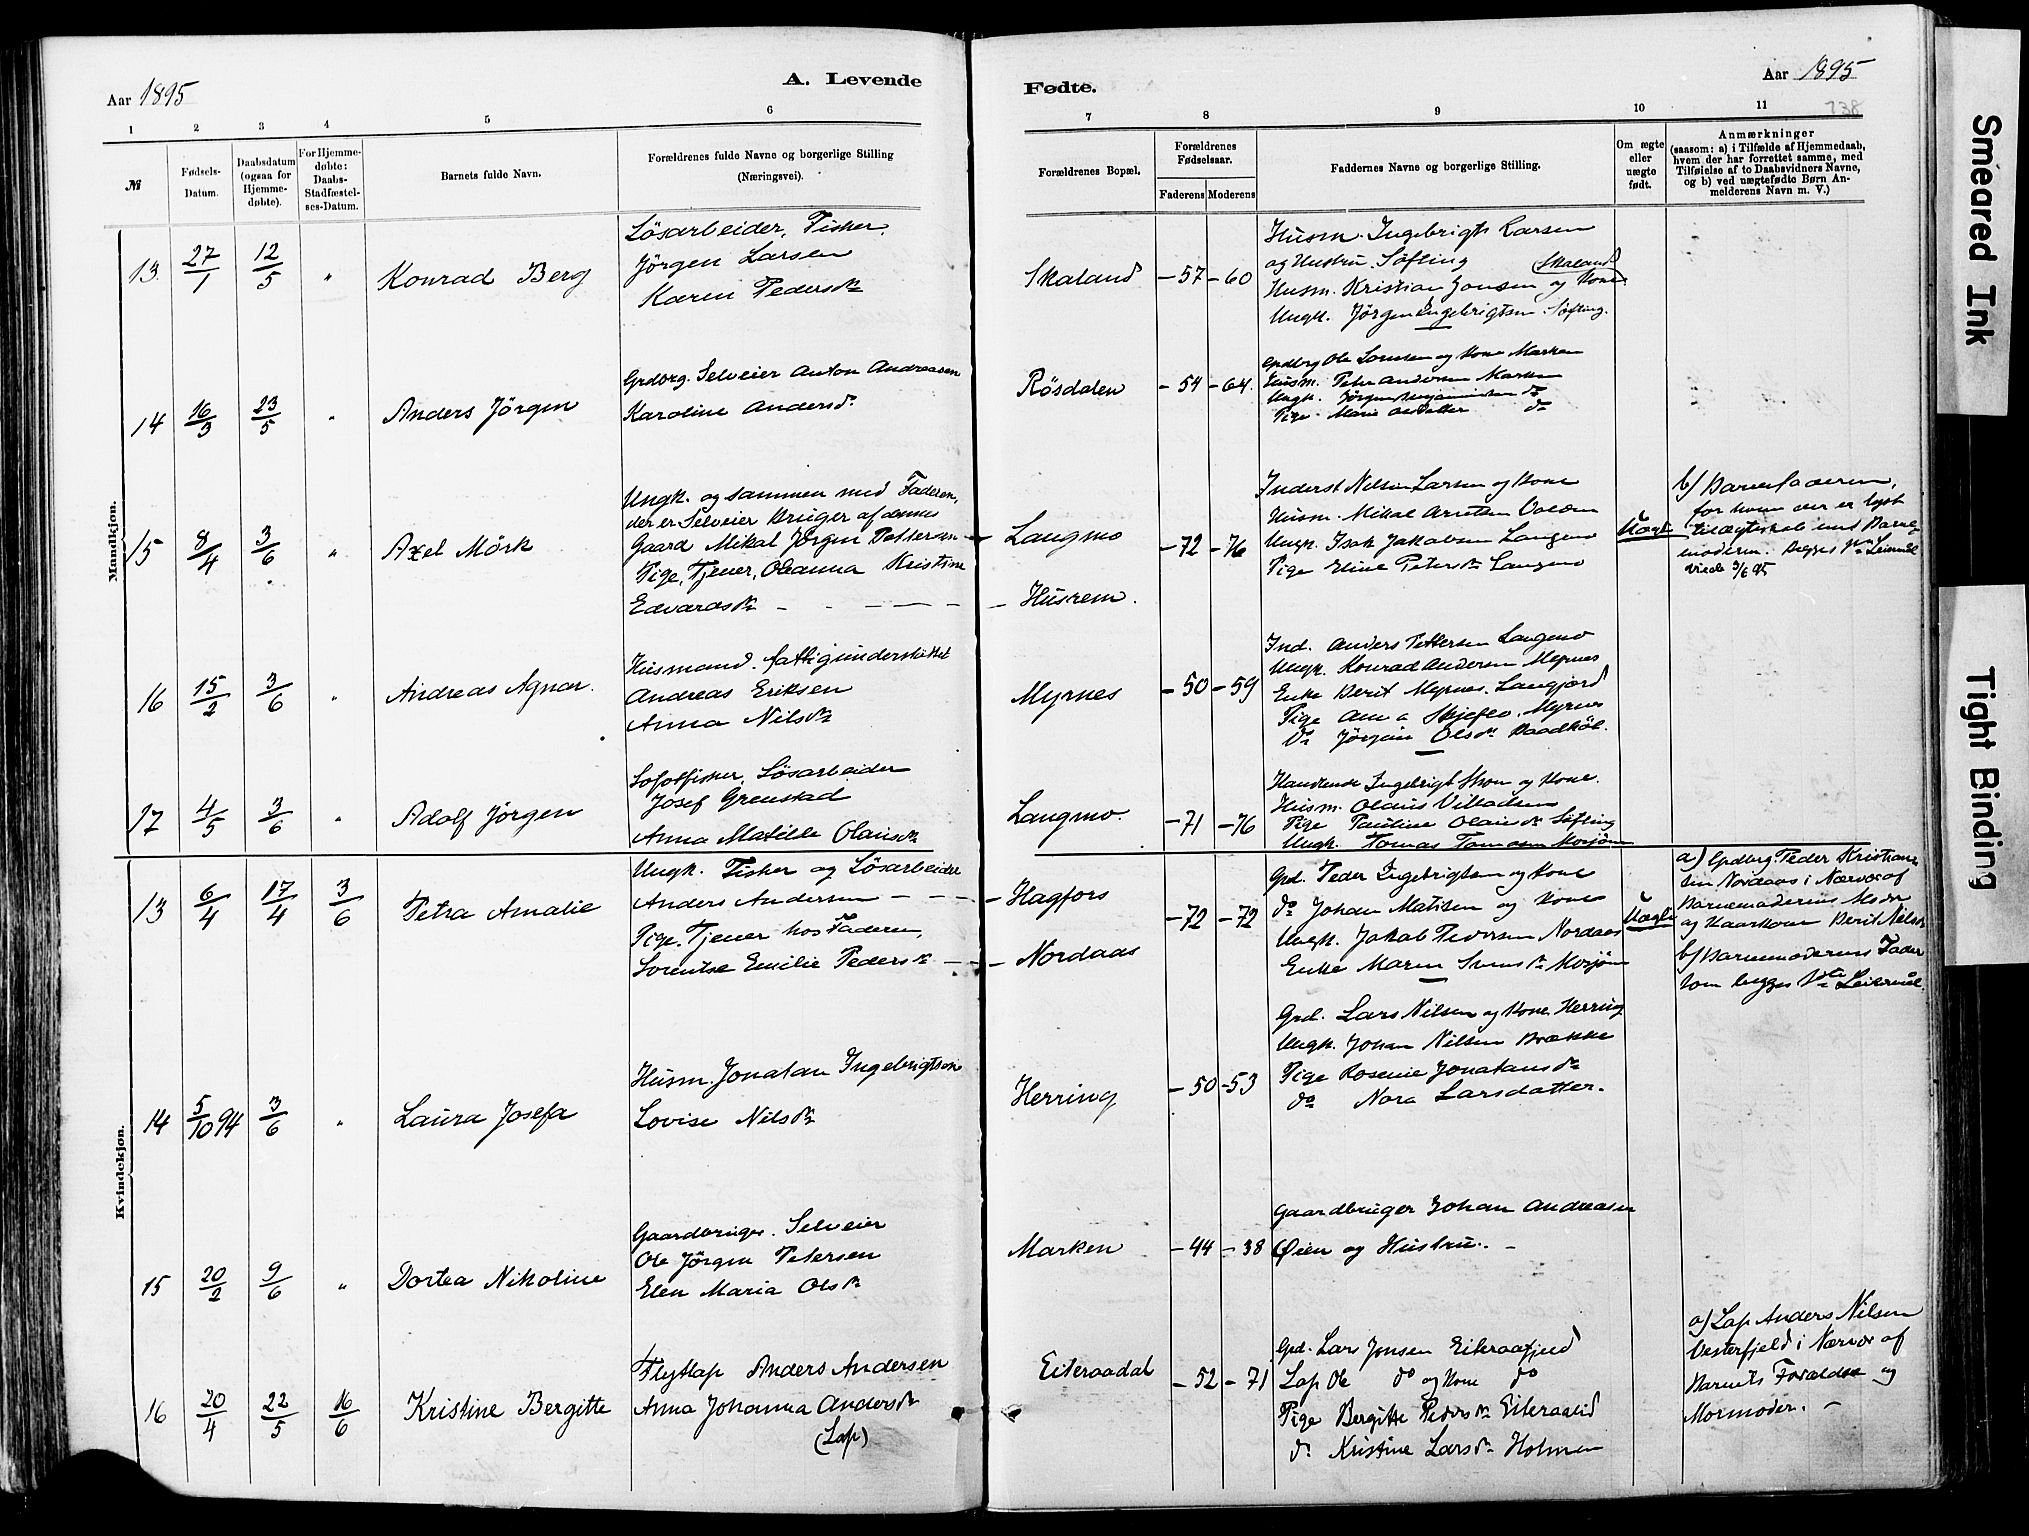 Aar 1895
A. Levende
1 2 3 4 5 6
№
Fødsels-Datum.
Daabsdatum (ogsaa for Hjemme-døbte).
For Hjemme-døbte: Daabs-Stadfæstel-ses-Datum.
Barnets fulde Navn.
Forældrenes fulde Navne og borgerlige Stilling
(Næringsvei).
Mandkjøn.
13 27/1 12/5 " Konrad Berg
Lösarbeider, Fisker,
Jörgen Larsen
Karen Pedersdtr
14 16/3 23/5 " Anders Jörgen
Grdbrg. Selveier Anton Andreassen
Karoline Andersd.
15 8/4 3/6 " Axel Mörk
Ungk. og sammen med Faderen,
der er Selveier Bruger af dennes
Gaard Mikal Jörgen Pettersen
Pige, Tjener, Oleanna Kristine
Edvardsdtr
16 15/2 3/6 " Andreas Agnar.
Husmand. fattigunderstöttet
Andreas Eriksen
Anna Nilsdtr
17 4/5 3/6 " Adolf Jörgen
Lofotfisker, Lösarbeider
Josef Grenstad
Anna Matilde Olausdtr
Kvindekjøn.
13 6/4 17/4 3/6 Petra Amalie
Ungk. Fisker og Lösarbeider
Anders Andersen
Pige. Tjener hos Faderen,
Lorentse Emilie Pedersdtr
14 5/10 94 3/6 " Laura Josefa
Husm. Jonatan Ingebrigtsen
Lovise Nilsdtr
15 20/2 9/6 " Dortea Nikoline
Gaardbruger. Selveier
Ole Jörgen Petersen
Elen Maria Olsdtr
16 20/4 22/5 16/6 Kristine Bergitte
Flytlap Anders Andersen
Anna Johanna Andersdtr
(Lap)
Fødte.
Aar 1895
138
7 8 9 10 11
Forældrenes Bopæl.
Forældrenes Fødselsaar.
Faderens Moderens
Faddernes Navne og borgerlige Stilling.
Om ægte eller uægte født.
Anmærkninger
(saasom: a) i Tilfælde af Hjemmedaab,
hvem der har forrettet samme, med
Tilføielse af to Daabsvidners Navne,
og b) ved uægtefødte Børn An-
melderens Navn m. V.)
Skaland -57 -60
Husm. Ingebrigt Larsen
og Hustru Söfting Skaland
Husm. Kristian Jonsen og Kone
Ungk. Jörgen Ingebrigtsen Söfting.
Rösdalen -54 -64.
Grdbrg Ole Larsen og Kone Marken
Husm. Peter Andersen Marken
Ungk. Jörgen Benjaminsen do
Pige Marie Olsdatter do
Langmo -72 -76
Husrem.
Inderst Nelsen Larsen og Kone
Husm. Mikal Arntsen
Ungk. Isak Jakobsen Langmo
Pige Eline Petersdtr Langmo
Uægte
b) Barnefaderen,
for hvem der er lyst
til Ægteskab med Barne
moderen. Begges 1ste Leiermål
viede 3/6 95
Myrnes -50 -59
Ind. Anders Pettersen Langmo
Ungk. Konrad Andersen Myrnes
Enke Berit Myrnes, Langjord
Pige Anna Skjeflo, Myrnes
do Jörgine Olsdtr Baadhöl.
Langmo. -71 -76
Handlende Ingebrigt Strom og Kone.
Husm. Olaus Villadsen
Pige Pauline Olausdtr Söfting
Ungk. Tomas Tomasen Mosjöen
Hagfors -72 -72
Nordaas
Grd. Peder Ingebrigtsen og Kone
do Johan Matisen og Kone
Ungk. Jakob Pedersen Nordaas
Enke Maren Svensdtr Mosjöen
Uægte
a) Grdbrg. Peder Kristian
sen Nordaas i Nærvær af
Barnemoderens Moder
og Kaarkone Berit Nilsdtr
b) Barnemoderens Fader
som begges 1ste Leiermål.
Herring -50 -53
Grd. Lars Nilsen og Kone Herring
Ungk. Johan Nilsen Brække
Pige Rosenie Jonatansdtr
do Nora Larsdatter.
Marken -44 -38
Gaardbruger Johan Andreasen
Øien og Hustru.
Eiteraadal -52 -71
Grd. Lars Jonsen Eiteraafjeld
Lap Ole do og Kone do
Pige Bergitte Pedersdtr Eiteraalid
do Kristine Larsdtr Holmen
a) Lap Anders Nilsen
Vesterfjeld i Nærvær af
Barnets Forældre og
Mormoder.
Smeared Ink
Tight Binding